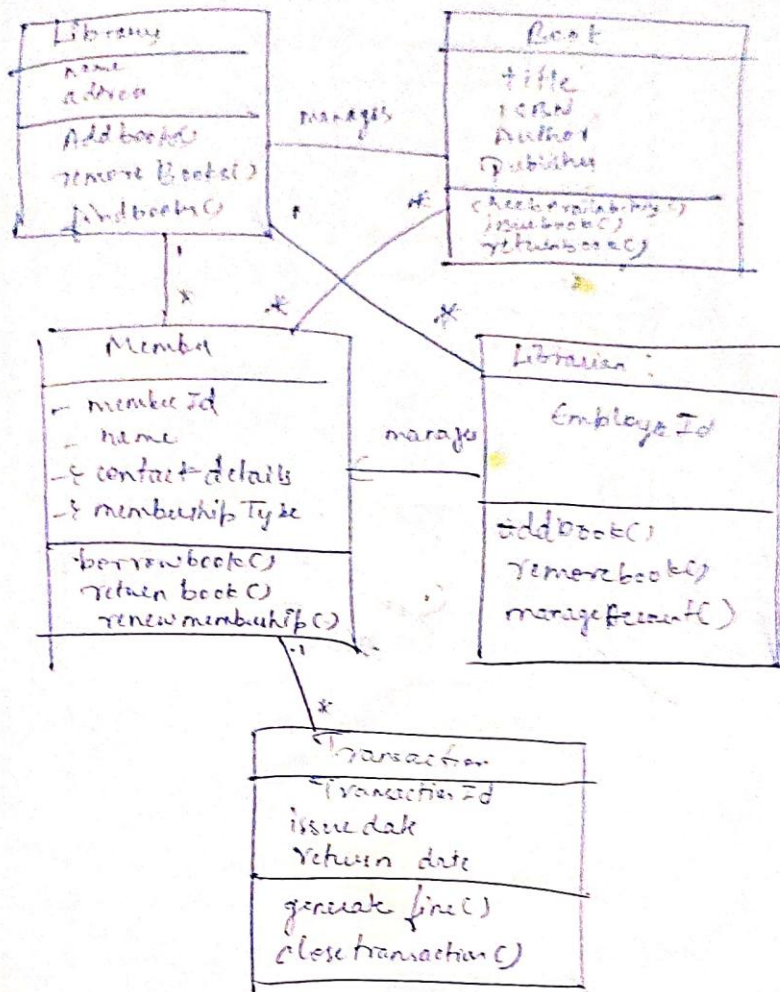 Library
name
address
Addbook()
remove Books()
findbooks()
manages
Book
title
ISBN
Author
Publisher
checkAvailability()
issuebook()
returnbook()
*
1
*
1
*
*
Member
- member Id
- name
- contact-details
- membership Type
borrowbook()
return book()
renewmembership()
manages
Librarian :
Employe Id
addbook()
removebook()
manageAccount()
1
*
Transaction
Transaction Id
issue date
return date
generate fine()
closetransaction()